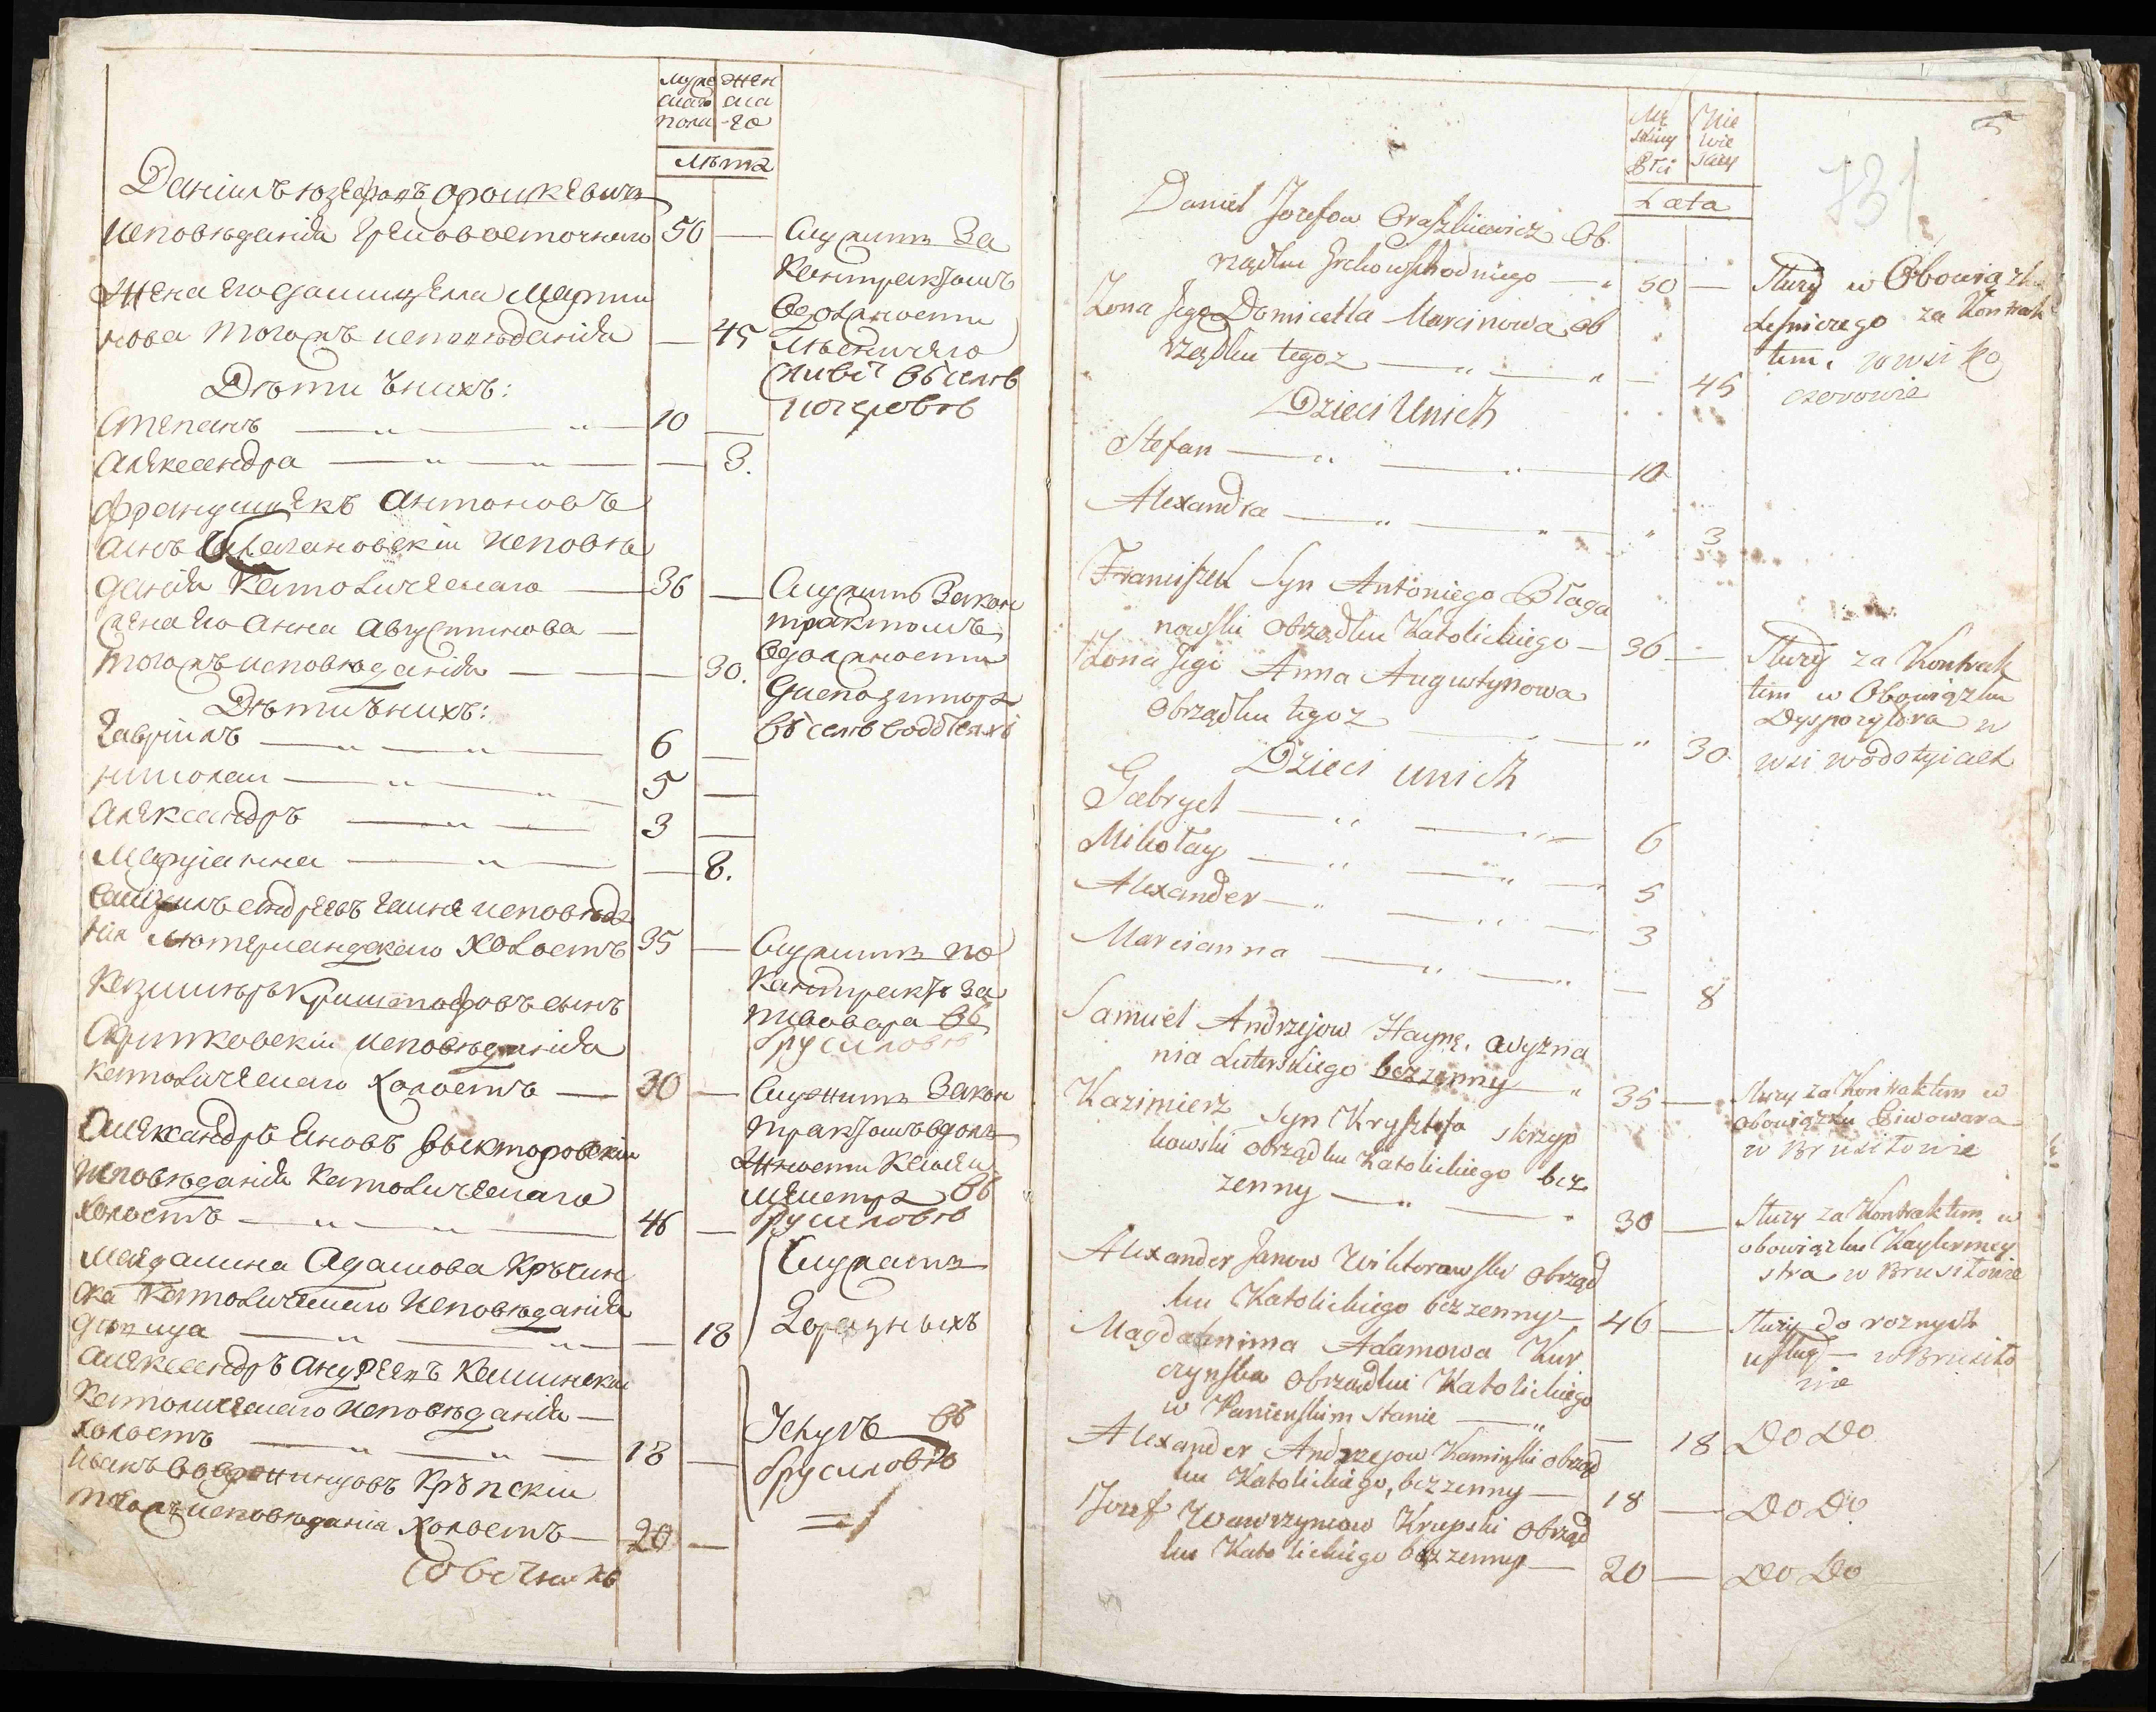 муже
скаго
пола
жен
ска
-го
лѣта
Данiилъ юзефовъ орошкевичъ
исповѣданiя грековосточнаго 50 —
Служитъ За
Контрактомъ
Вдолжности
лѣсничаго
живiт Въ селѣ
кочеровѣ
Жена его домицелла Марти
нова тогожъ исповѣданiя — 45
Дѣти Унихъ:
Степанъ — „ — „ — 10 —
Александра — „ — „ — — 3.
францишекъ антоновъ
сынъ исповѣ
данiя Католическаго — 36 —
Служитъ Закон
трактомъ
Вдолжности
Диспозитора
Въ селѣ
жена его Анна Августинова —
тогожъ исповѣданiя — — 30.
Дѣти Унихъ:
Гаврiилъ — „ — „ — 6 —
николаи — „ — „ — 5 —
Александръ — „ — 3 —
Марiанна — „ — — 8.
Самуилъ андреевъ Гаине исповѣда
нiя Холостъ 35 —
Служитъ по
Контракту за
пивовара Въ
брусиловѣ
Казимиръ Криштофовъ сынъ
исповѣданiя
Католическаго холостъ — 30 —
Служитъ Закон
трактомъ вдолж
жности
Въ
брусиловѣ
Александръ Яновъ Виекторовскiи
исповѣданiя Католическаго
холостъ — „ — „ — 46 —
Магдалина Адамова
ска Католическаго исповѣданiя
дѣвица — „ — „ — — 18
Служатъ
Александръ Андреевъ Каминскiи
Католическаго исповѣданiя —
холостъ — „ — „ — 18 —
Въ
брусиловѣ
Крѣпскiи
тогожъ исповѣданiя Холостъ — 20 —
Mę
skiey
Płci
Nie
wie
sciey
Lata
5
731
Daniel Jozefow Oraszkiewicz Ob
rządku Grekowschodniego — „ 50 —
Służy w Obowiązku
Leśniczego za Kontrak
tem, w wsi Ko
czerowie
Zona Jego Domicella Marcinowa ob
rządku tegoz — „ — „ — 45
Dzieci Unich
Stefan — „ — „ — 10
Alexandra — „ — „ — „ 3
Franciszek Syn Antoniego Błaga
nowski obrządku Katolickiego — 36 —
Służy za Kontrak
tem w Obowiązku
Dyspozytora w
wsi wodotyiach
Zona Jego Anna Augustynowa
obrządku tegoz — „ 30.
Dzieci unich
Gabryel — „ — „ — 6
Mikołay — „ — „ — 5
Alexander — „ — „ — 3
Marcianna — „ — „ — 8
Samuel Andrzejow Hayne, wyzna
nia Luterskiego bezzenny — „ 35 —
Służy za Kontraktem w
obowiązku Piwowara
w Brusiłowie
Kazimierz Syn Krysztofa Skrzyp
kowski obrządku Katolickiego bez
zenny — „ — „ 30 —
Służy za Kontraktem w
obowiązku Kaylermey
stra w Brusiłowie
Alexander Janow Wiktorowski obrząd
ku Katolickiego bezzenny — 46 —
Służy do roznych
usług — w Brusiło
wie
Magdalnima Adamowa Kur
czynska obrządku Katolickiego
w Panienskim stanie — „ — 18 Do Do
Alexander Andrzejow Kaminski obrząd
ku Katolickiego, bezzenny — 18 — Do Do
Jozef Wawrzyncow Krupski obrząd
ku Katolickiego bezzenny — 20 — Do Do